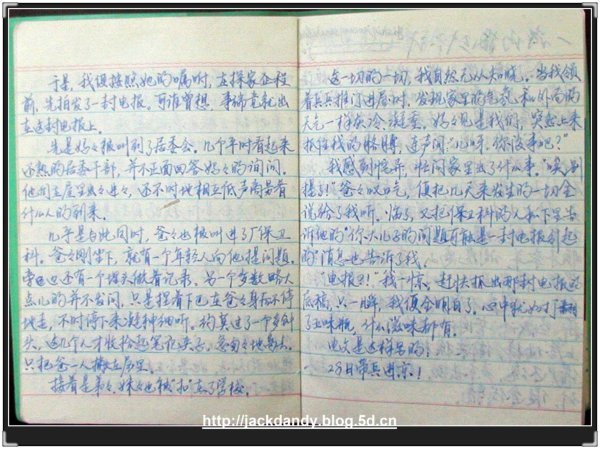 于是,我便按照她的嘱咐,在探家启程
前,先拍发了一封电报。可谁曾想,事情竟就出
在这封电报上。
先是妈妈被叫到了居委会。几个平时看起来
还熟的居委干部,并不正面回答妈妈的询问。
他们在屋里出出进进,还不时地相互低声商量着
什么人的到来。
几乎是与此同时,爸爸也被叫进了厂保卫
科。爸爸刚坐下,就有个年轻人向他提问题,
旁边还有一个埋头做着记录。另一个岁数略大
点儿的并不答问,只是捏着下巴在爸爸身后不停
地走,不时停下来凝神细听。约莫过了一个多钟
头,这几个人才收拾起笔和本子,匆匆地离去。
只把爸一人撇在屋里。
接着是弟弟、妹妹也被"扣"在了学校。
这一切的一切,我自然无从知晓。当我领
着兵兵推门进屋时,发现家里的气氛和外面的
天气一样灰冷、凝重。妈妈一见是我们,突然上来
抓住我的胳膊,连声问:"儿呀,你没事吧?"
我感到惊异,忙问家里出了什么事。"唉,别
提了!"爸爸叹口气,便把几天来发生的一切全
说给了我听。临了,又把保卫科的人私下里告
诉他的"你大儿子的问题可能是一封电报引起
的"消息也告诉了我。
"电报?!"我一惊,赶快抓出那封电报的
底稿,只一眼,我便全明白了。心中就如打翻
了五味瓶,什么滋味都有。
电文是这样写的:
25日带兵进京!
http://jackdandy.blog.5d.cn